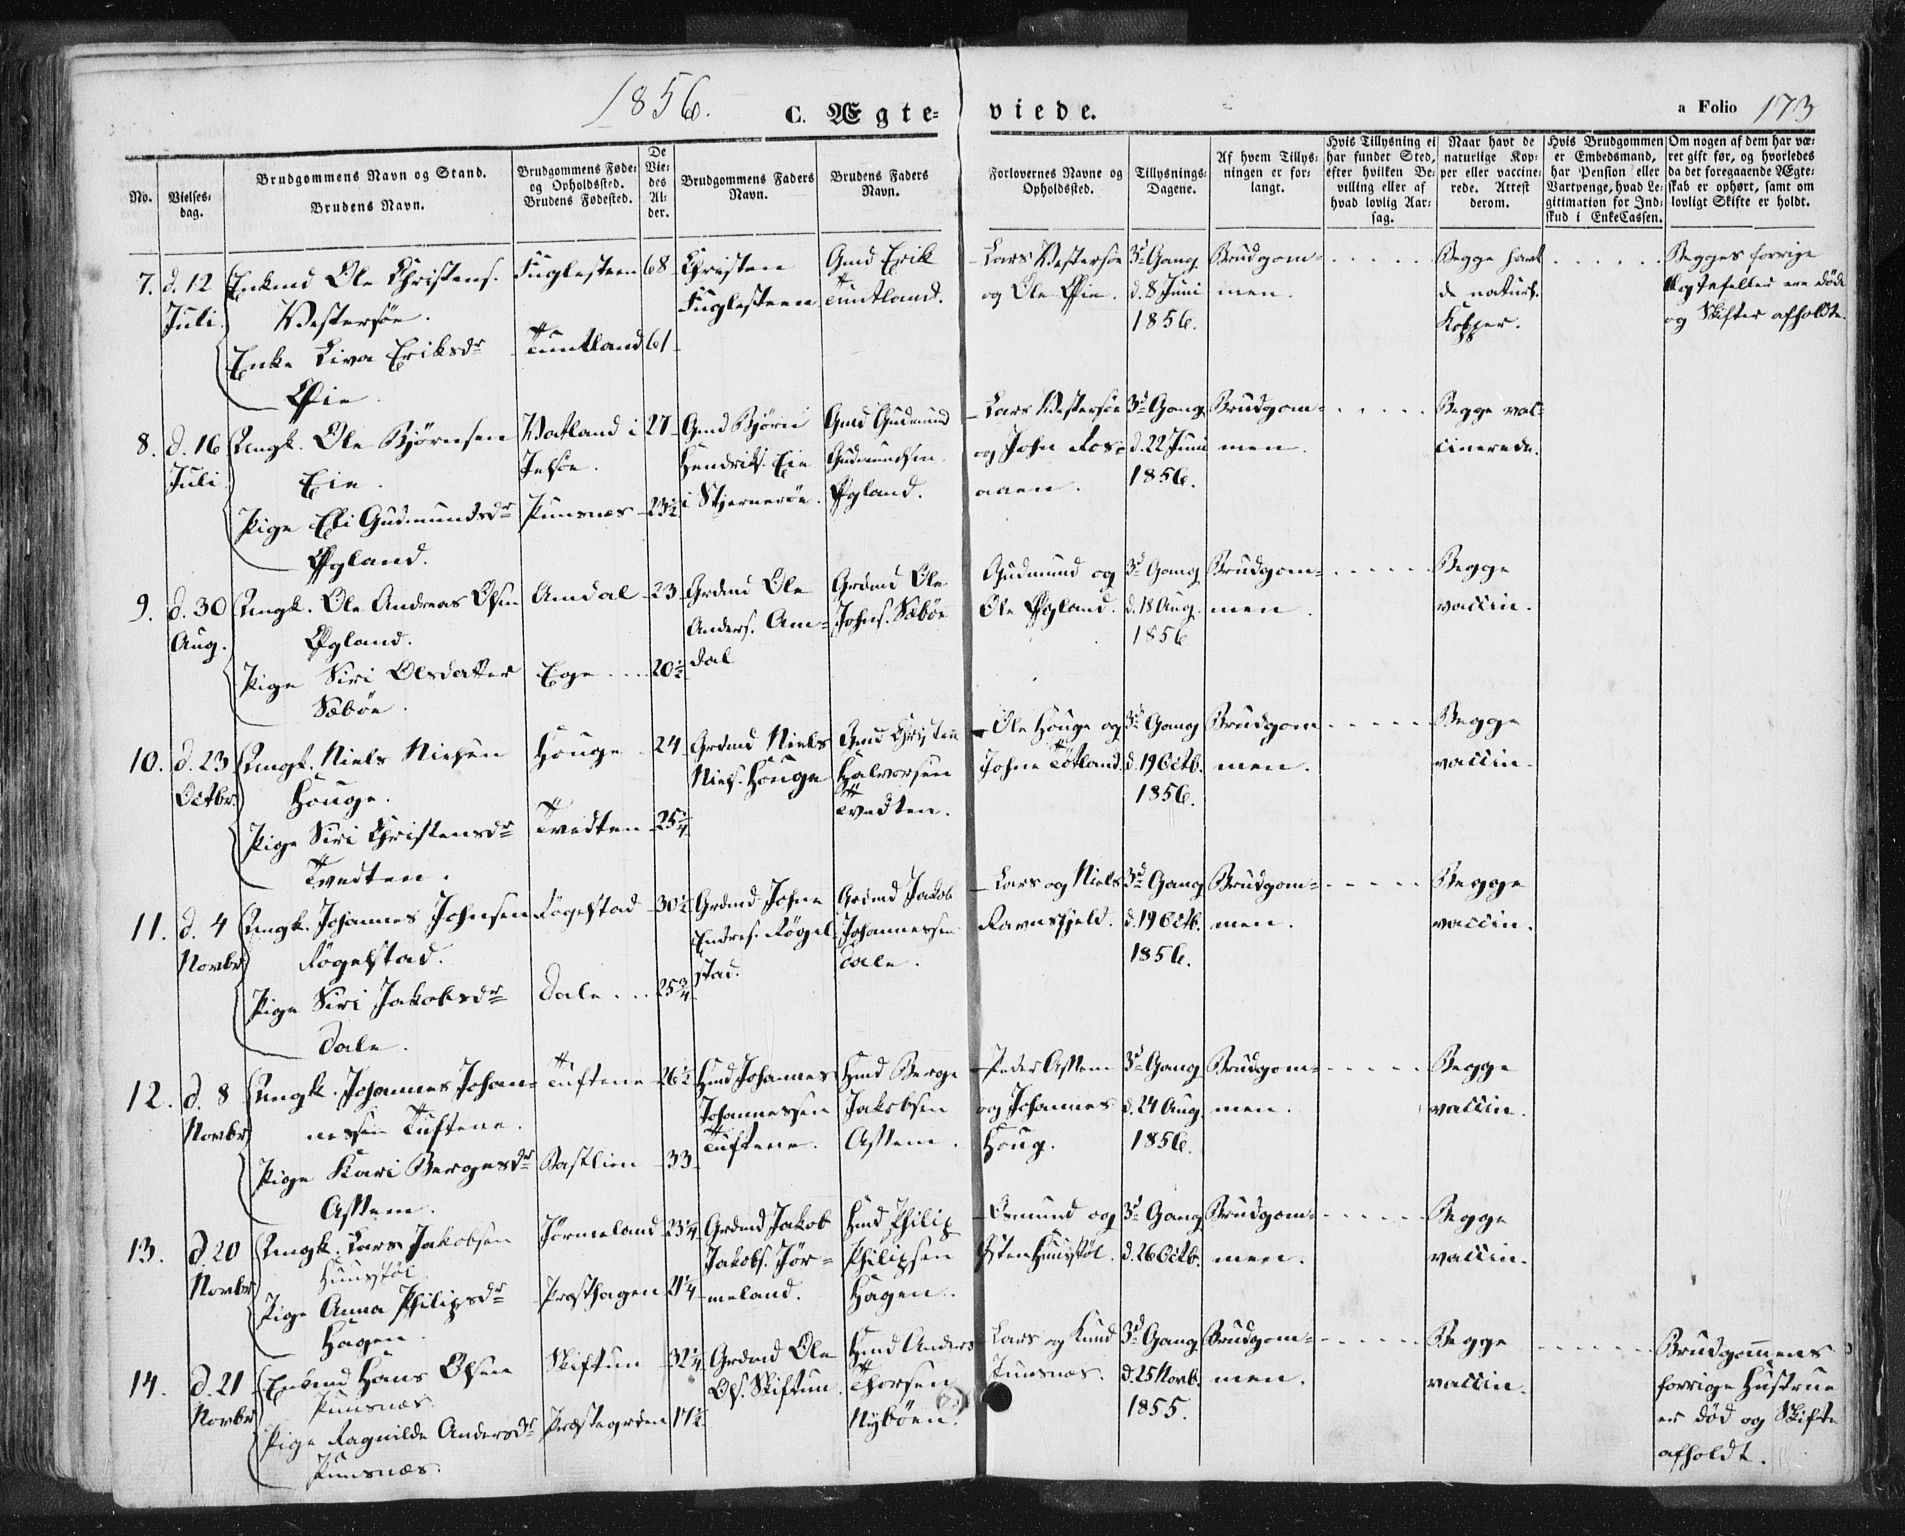 1856.
C. Ægte- viede.
a Folio 173
No.
Vielses-
dag.
Brudgommens Navn og Stand.
Brudens Navn.
Brudgommens Føde-
og Opholdssted.
Brudens Fødested.
De
Vie-
des
Al-
der.
Brudgommens Faders
Navn.
Brudens Faders
Navn.
Forlovernes Navne og
Opholdssted.
Tillysnings-
Dagene.
Af hvem Tillys-
ningen er for-
langt.
Hvis Tillysning ei
har fundet Sted,
efter hvilken Be-
villing eller af
hvad lovlig Aar-
sag.
Naar havt de
naturlige Kop-
per eller vaccine-
rede. Attest
derom.
Hvis Brudgommen
er Embedsmand,
har Pension eller
Vartpenge, hvad Le-
gitimation for Ind-
skud i EnkeCassen.
Om nogen af dem har væ-
ret gift før, og hvorledes
da det foregaaende Ægte-
skab er ophørt, samt om
lovligt Skifte er holdt.
7. d. 12
Juli
Enkmd Ole Christens.
Vestersøe.
Enke Liva Eriksdr
Øie.
Fuglesteen 68
Tuntland 61
Christen
Fuglesteen
Gmd Erik
Tuntland.
Lars Vestersøe
og Ole Øie.
3d Gang
d. 8 Juni
1856.
Brudgom-
men.
Begge hav-
de naturl.
Kopper.
Begges forrige
Ægtefeller ere døde
og Skifter afholdte.
8. d. 16
Juli
Ungk. Ole Bjørnsen
Eie.
Pige Eli Gudmundsdr
Øgland.
Vatland i
Jelsøe.
27
Punsnæs 23½
Gmd Bjørn
Hendriks. Eie
i Stjernerøe.
Gmd Gudmund
Gudmundsen
Øgland.
Lars Vestersøe
og John Ros-
aaen.
3d Gang
d. 22 Juni
1856.
Brudgom-
men.
Begge vac-
cinerede.
9. d. 30
Aug.
Ungk. Ole Andreas Olsen
Øgland.
Pige Siri Olsdatter
Sæbøe.
Amdal 23
Ege 20½
Grdmd Ole
Anders. Am-
dal
Grdmd Ole
Johns. Sæbøe
Gudmund og
Ole Øgland.
3d Gang
d. 18 Aug.
1856
Brudgom-
men.
Begge
vaccin.
10. d. 23
Octbr.
Ungk. Niels Nielsen
Houge.
Pige Siri Christensdr
Tvedten.
Houge 24
Tvedten 25¼
Grdmd Niels
Niels. Houge
Gmd Christen
Halvorsen
Tvedten.
Ole Houge og
Johne Tøtland.
3d Gang
d. 19 Octb.
1856.
Brudgom
men.
Begge
vaccin.
11. d. 4
Novbr
Ungk. Johannes Johnsen
Røgelstad.
Pige Siri Jakobsdr
Dale.
Røgelstad 30½
Dale 25¾
Grdmd Johne
Endres. Røgel
stad.
Grdmd Jakob
Johannessen
Dale.
Lars og Niels
Ravnsfjeld.
3d Gang
d. 19 Octb.
1856.
Brudgom-
men.
Begge
vaccin.
12. d. 8
Novbr
Ungk. Johannes Johan-
nessen Tuftene.
Pige Kari Bergesdr
Assem.
Tuftene 26½
Bastlien 33
Hmd Johannes
Johannessen
Tuftene.
Hmd Berge
Jakobsen
Assem.
Peder Assem
og Johannes
Houg.
3d Gang
d. 24 Aug
1856.
Brudgom-
men.
Begge
vaccin.
13. d. 20
Novbr
Ungk. Lars Jakobsen
Huusstøl
Pige Anna Philipsdr
Hagen.
Jørmeland 23¼
Præsthagen 21¼
Grdmd Jakob
Jakobs. Jør-
meland.
Hmd Philip
Philipsen
Hagen.
Osmund og
Østen Huusstøl.
3d Gang
d. 26 Octb.
Brudgom-
men.
Begge
vaccin.
14. d. 21
Novbr
Enkmd Hans Olsen
Punsnæs.
Pige Ragnilde Andersdr
Punsnæs.
Skiftun 32¼
Præstegrden 17½
Grdmd Ole
Ols. Skiftun.
Hmd Anders
Thorsen
Nybøen.
Lars og Knud
Punsnæs.
3d Gang
d. 25 Novb.
1855.
Brudgom-
men.
Begge
vaccin.
Brudgommens
forrige Hustrue
er død og Skifte
afholdt.